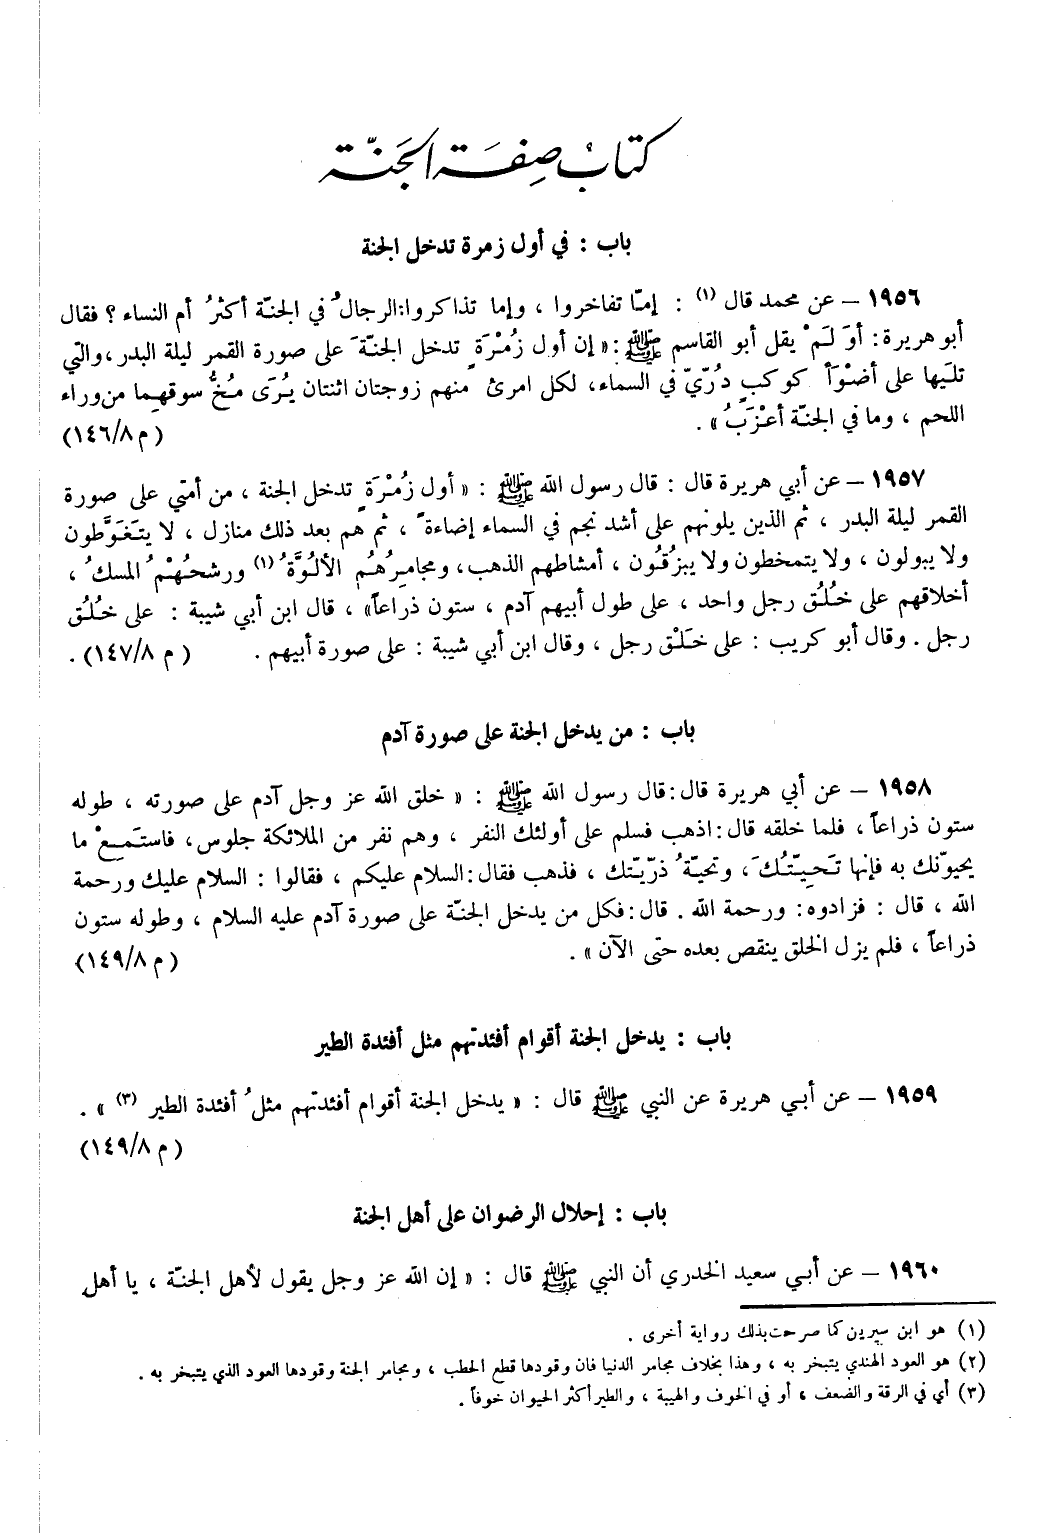 كتاب صفة الجنة
باب : في أول زمرة تدخل الجنة
١٩٥٦ – عن محمد قال (١) : إمّا تفاخروا ، وإما تذاكروا:الرجالُ في الجنّة أكثرُ أم النساء ؟ فقال
أبو هريرة: أوَ لَمْ يقل أبو القاسم ﷺ :« إن أول زُمْرَةٍ تدخل الجنّةَ على صورة القمر ليلة البدر ،والتي
تليها على أضْوَأ كوكبٍ دُرّيّ في السماء، لكل امرئ منهم زوجتان اثنتان يُرَى مُخُّ سوقهما من وراء
اللحم ، وما في الجنّة أعْزَبُ » .
(م ١٤٦/٨)
١٩٥٧ – عن أبي هريرة قال : قال رسول الله ﷺ : « أول زُمْرَةٍ تدخل الجنة ، من أمتي على صورة
القمر ليلة البدر ، ثم الذين يلونهم على أشد نجم في السماء إضاءةً ، ثم هم بعد ذلك منازل ، لا يتَغَوَّطون
ولا يبولون ، ولا يتمخطون ولا يبزُقُون ، أمشاطهم الذهب، ومجامِرُهُم الألُوَّةُ (١) ورشحُهُمْ المسكُ ،
أخلاقهم على خُلُق رجل واحد ، على طول أبيهم آدم ، ستون ذراعاً» ، قال ابن أبي شيبة : على خُلُق
رجل . وقال أبو كريب : على خَلْق رجل ، وقال ابن أبي شيبة : على صورة أبيهم . (م ١٤٧/٨) .
باب : من يدخل الجنة على صورة آدم
١٩٥٨ – عن أبي هريرة قال:قال رسول الله ﷺ : « خلق الله عز وجل آدم على صورته ، طوله
ستون ذراعاً ، فلما خلقه قال:اذهب فسلم على أولئك النفر ، وهم نفر من الملائكة جلوس، فاستَمِعْ ما
يحيوّنك به فإنها تَحِيّتُكَ، وتحيّةُ ذرّيّتك ، فذهب فقال:السلام عليكم ، فقالوا : السلام عليك ورحمة
الله ، قال : فزادوه: ورحمة الله . قال:فكل من يدخل الجنّة على صورة آدم عليه السلام ، وطوله ستون
ذراعاً ، فلم يزل الخلق ينقص بعده حتى الآن » .
(م ١٤٩/٨)
باب : يدخل الجنة أقوام أفئدتهم مثل أفئدة الطير
١٩٥٩ – عن أبي هريرة عن النبي ﷺ قال : « يدخل الجنة أقوام أفئدتهم مثلُ أفئدة الطير (٣) » .
(م ١٤٩/٨)
باب : إحلال الرضوان على أهل الجنة
١٩٦٠ – عن أبي سعيد الخدري أن النبي ﷺ قال : « إن الله عز وجل يقول لأهل الجنّة ، يا أهل
(١) هو ابن سيرين كما صرحت بذلك رواية أخرى .
(٢) هو العود الهندي يتبخر به ، وهذا بخلاف مجامر الدنيا فان وقودها قطع الحطب ، ومجامر الجنة وقودها العود الذي يتبخر به .
(٣) أي في الرقة والضعف ، أو في الخوف والهيبة ، والطير أكثر الحيوان خوفاً .